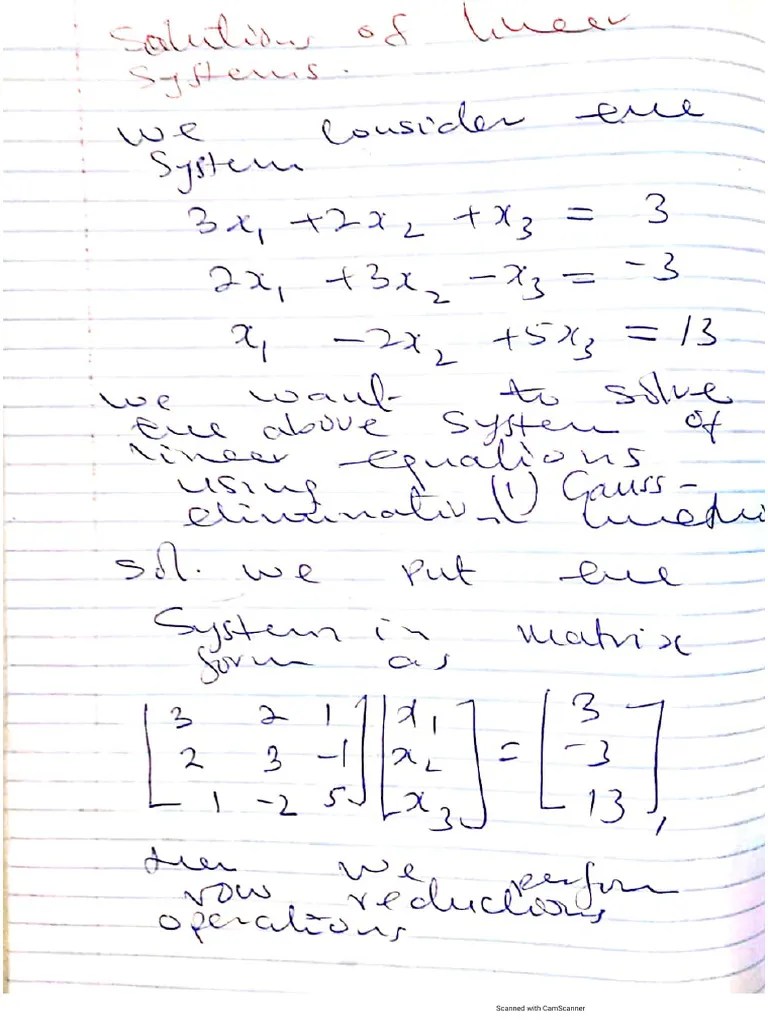 Solutions of linear
systems.
we consider the
System
3x₁ + 2x₂ + x₃ = 3
2x₁ + 3x₂ - x₃ = -3
x₁ - 2x₂ + 5x₃ = 13
we want to solve
the above system of
linear equations
using (1) Gauss-
elimination
sol. we put the
System in matrix
form as
[3 2 1] [x₁] = [3]
[2 3 -1] [x₂] = [-3]
[1 -2 5] [x₃] = [13],
then we perform
row reductions
operations
Scanned with CamScanner